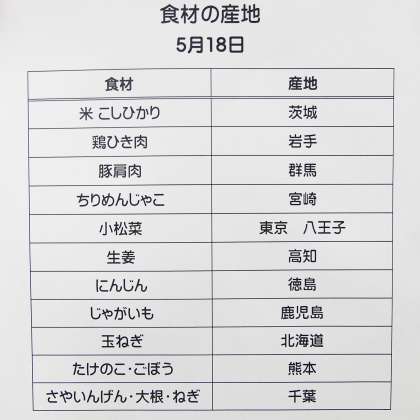 食材の産地
5月18日
食材 産地
米 こしひかり 茨城
鶏ひき肉 岩手
豚肩肉 群馬
ちりめんじゃこ 宮崎
小松菜 東京　八王子
生姜 高知
にんじん 徳島
じゃがいも 鹿児島
玉ねぎ 北海道
たけのこ・ごぼう 熊本
さやいんげん・大根・ねぎ 千葉